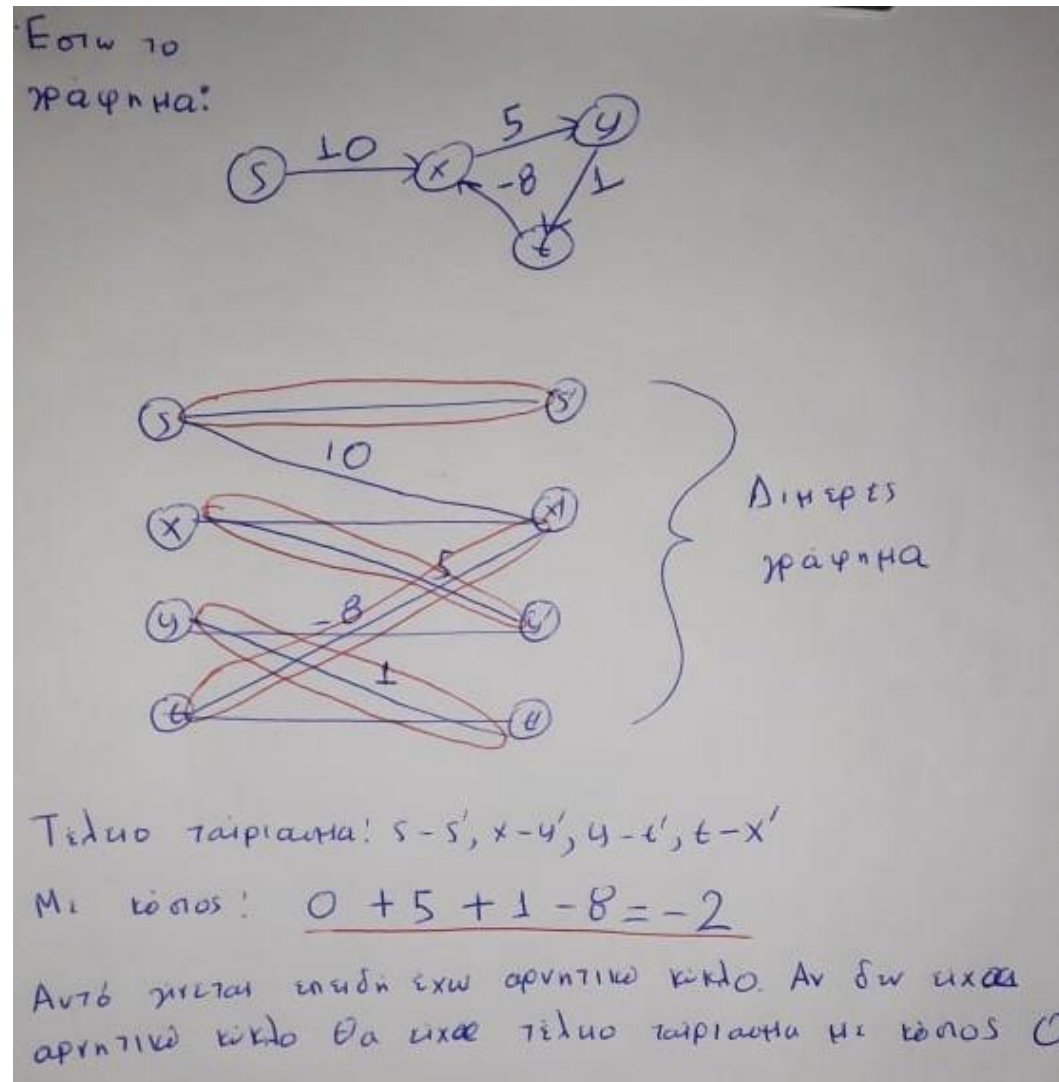 Εστω το
γράφημα:
S 10 x 5 y
-8 1
t
s s'
10
x x'
5
y -8 y'
1
t t'
Διμερές
γράφημα
Τέλειο ταίριασμα: s-s', x-y', y-t', t-x'
Με κόστος: 0 + 5 + 1 - 8 = -2
Αυτό γινεται επειδή έχω αρνητικό κύκλο. Αν δεν ειχα
αρνητικό κύκλο θα ειχα τέλειο ταιριασμα με κόστος 0